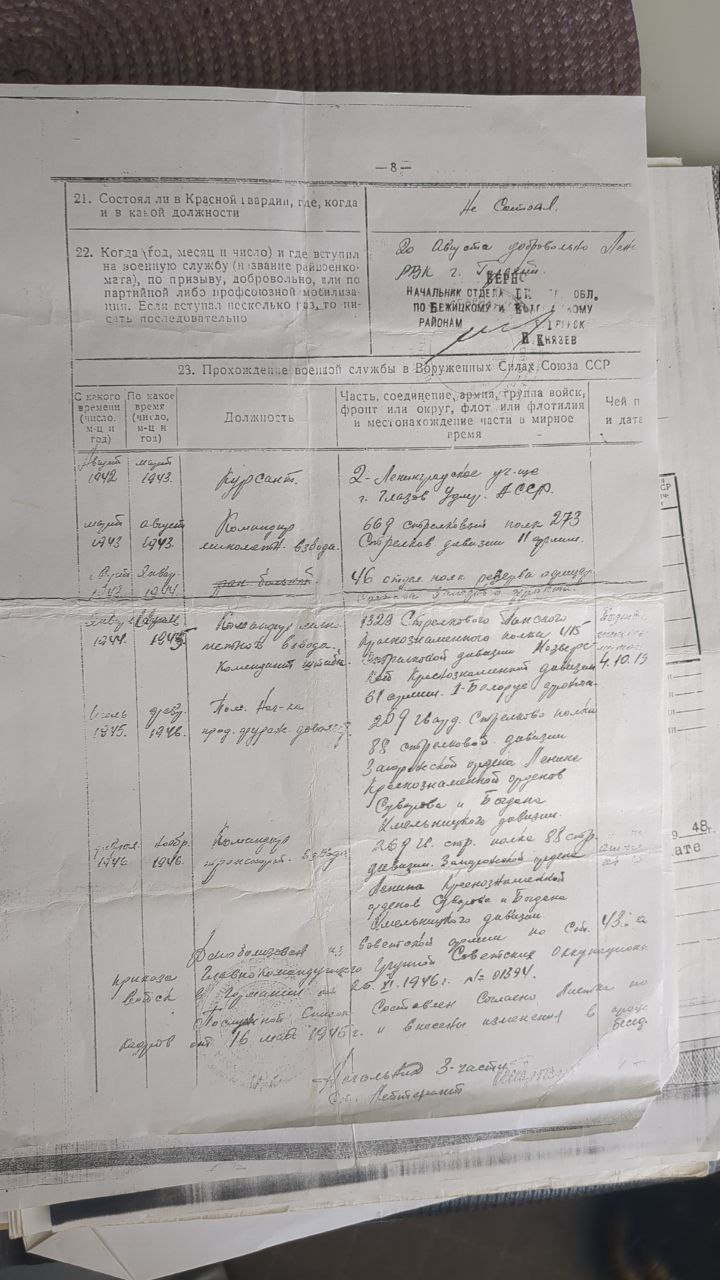 — 8 —
21. Состоял ли в Красной гвардии, где, когда
и в какой должности
Не состоял.
22. Когда (год, месяц и число) и где вступил
на военную службу (название райвоенко-
мата), по призыву, добровольно, или по
партийной либо профсоюзной мобилиза-
ции. Если вступал несколько раз, то пи-
сать последовательно
20 Августа добровольно
РВК г.
ВЕРНО
НАЧАЛЬНИК ОТДЕЛА ОБЛ.
ПО БЕЖИЦКОМУ И ВОЛОДАРСКОМУ
РАЙОНАМ Г. БРЯНСК
КНЯЗЕВ
23. Прохождение военной службы в Воруженных Силах Союза ССР
С какого
времени
(число,
м-ц и
год)
По какое
время
(число,
м-ц и
год)
Должность
Часть, соединение, армия, группа войск,
фронт или округ, флот или флотилия
и местонахождение части в мирное
время
Чей п
и дата
Август
1942
март
1943.
Курсант.
2- Ленинградское уч-ще
г. Глазов Удмур. АССР.
март
1943
август
1943.
Командир
миномётн. взвода.
669 стрелковый полк 273
Стрелков. дивизии 11 армии.
Январ.
46 отдел. полк резерва офицер
1944.
1945
Командир мино-
метного взвода.
Комендант штаба.
1323 Стрелкового
Краснознаменного полка 415
стрелковой дивизии
Краснознаменной дивизии
61 армии. 1-Белорус. фронта.
4.10.19
1945.
1946.
Пом. Нач-ка
прод. фураж.
269 Гвард. Стрелков. полка
88 стрелковой дивизии
Запорожской ордена Ленина
Краснознаменной орденов
Суворова и Богдана
Хмельницкого дивизии.
1946
1946.
Командир
транспорт. взвода
269 Гв. стр. полка 88 стр.
дивизии. Запорожской ордена
Ленина Краснознаменной
орденов Суворова и Богдана
Хмельницкого дивизии.
Демобилизован из Советской армии по Ст. 43
приказа Главнокомандующего Группой Советских Оккупационн.
войск в Германии от 26. XI. 1946г. № 01394.
Послужной Список Составлен Согласно
кадров от 16 мая 1946г. и внесены изменения в
бесед.
Начальник 3-части
Ст. Лейтенант
48 г.